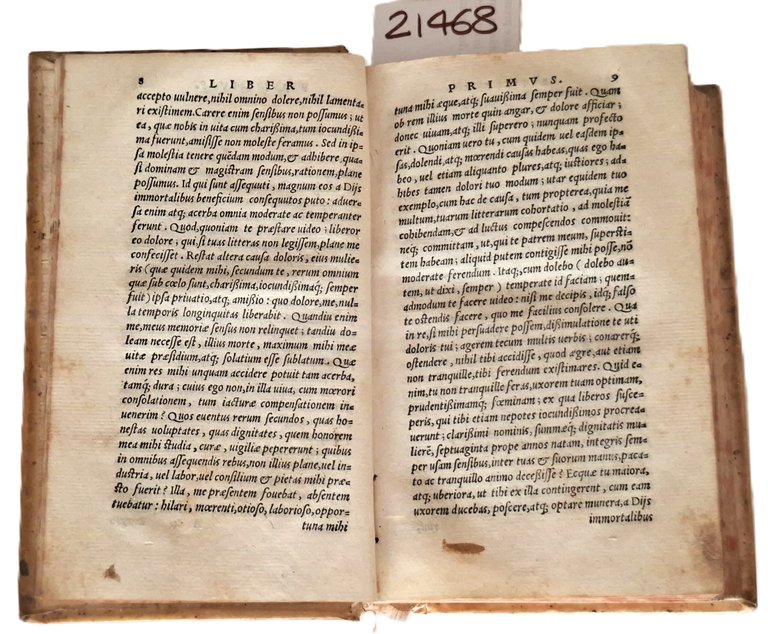 21468
8 LIBER
accepto uulnere, nihil omnino dolere, nihil lamenta-
ri existimem. Carere enim sensibus non possumus; ut
ea, quæ nobis in uita cum charißima, tum iocundißi-
ma fuerunt, amisisse non moleste feramus. Sed in ip-
sa molestia tenere quēdam modum, & adhibere, qua-
si dominam & magistram sensibus, rationem, plane
possumus. Id qui sunt assequuti, magnum eos a Dijs
immortalibus beneficium consequutos puto: aduer-
sa enim atq; acerba omnia moderate ac temperanter
ferunt. Quod, quoniam te præstare uideo; liberor
eo dolore; qui, si tuas litteras non legissem, plane me
confecisset. Restat altera causa doloris, eius mulie-
ris (quæ quidem mihi, secundum te, rerum omnium
quæ sub cœlo sunt, charißima, iocundißimaq; semper
fuit) ipsa priuatio, atq; amißio: quo dolore, me, nul-
la temporis longinquitas liberabit. Quandiu enim
me, meus memoriæ sensus non relinquet; tandiu do-
leam necesse est, illius morte, maximum mihi meæ
uitæ præsidium, atq; solatium esse sublatum. Quæ
enim res mihi unquam accidere potuit tam acerba,
tamq; dura; cuius ego non, in illa uiua, cum mœrori
consolationem, tum iacturæ compensationem in-
uenerim? Quos euentus rerum secundos, quas ho-
nestas uoluptates, quas dignitates, quem honorem
mea mihi studia, curæ, uigiliæ pepererunt; quibus
in omnibus assequendis rebus, non illius plane, uel in-
dustria, uel labor, uel consilium & pietas mihi præ-
sto fuerit? Illa, me præsentem fouebat, absentem
tuebatur: hilari, mœrenti, otioso, laborioso, oppor-
tuna mihi
PRIMVS. 9
tuna mihi æque, atq; suauißima semper fuit. Quam
ob rem illius morte quin angar, & dolore afficiar;
donec uiuam, atq; illi superero; nunquam profecto
erit. Quoniam uero tu, cum quidem uel easdem ip-
sas, dolendi, atq; mœrendi causas habeas, quas ego ha-
beo, uel etiam aliquanto plures, atq; iustiores; ad-
hibes tamen dolori tuo modum; utar equidem tuo
exemplo, cum hac de causa, tum propterea, quia me
multum, tuarum litterarum cohortatio, ad molestiā
cohibendam, & ad luctus compescendos commouit:
neq; committam, ut, qui te patrem meum, supersti-
tem habeam; aliquid putem contigisse mihi posse, nō
moderate ferendum. Itaq; cum dolebo (dolebo au-
tem, ut dixi, semper) temperate id faciam; quem-
admodum te facere uideo: nisi me decipis, idq; falso
te ostendis facere, quo me facilius consolere. Qua
in re, si mihi persuadere possem, dißimulatione te uti
doloris tui; agerem tecum multis uerbis; conarerq;
ostendere, nihil tibi accidisse, quod ægre, aut etiam
non tranquille, tibi ferendum existimares. Quid e-
nim, tu non tranquille feras, uxorem tuam optimam,
prudentißimamq; fœminam; ex qua liberos susce-
peris, qui tibi etiam nepotes iocundißimos procrea-
uerunt; clarißimi nominis, summæq; dignitatis mu-
lierē, septuaginta prope annos natam, integris sem-
per usam sensibus, inter tuas & suorum manus, paca-
to ac tranquillo animo deceßisse? Ecquæ tu maiora,
atq; uberiora, ut tibi ex illa contingerent, cum eam
uxorem ducebas, poscere, atq; optare munera, a Dijs
immortalibus